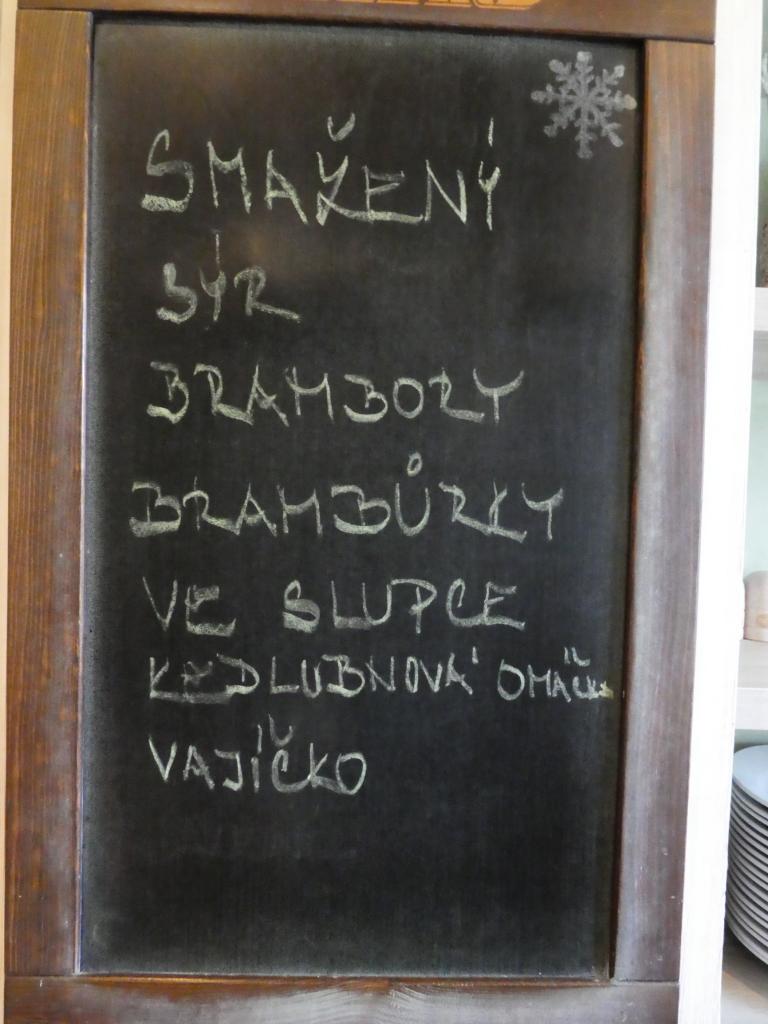 SMAŽENÝ
SÝR
BRAMBORY
BRAMBŮRKY
VE SLUPCE
KEDLUBNOVÁ OMÁČKA
VAJÍČKO